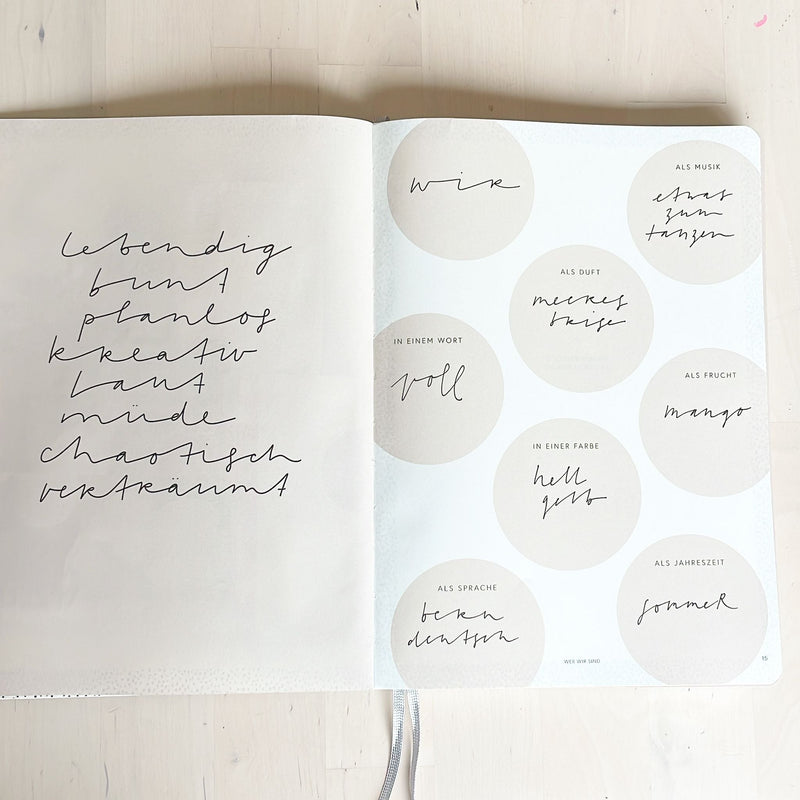 lebendig
bunt
planlos
kreativ
laut
müde
chaotisch
verträumt
wir
ALS MUSIK
etwas
zum
tanzen
ALS DUFT
meeres
brise
IN EINEM WORT
voll
ALS FRUCHT
mango
IN EINER FARBE
hell
gelb
ALS JAHRESZEIT
sommer
ALS SPRACHE
bern
deutsch
WER WIR SIND
15